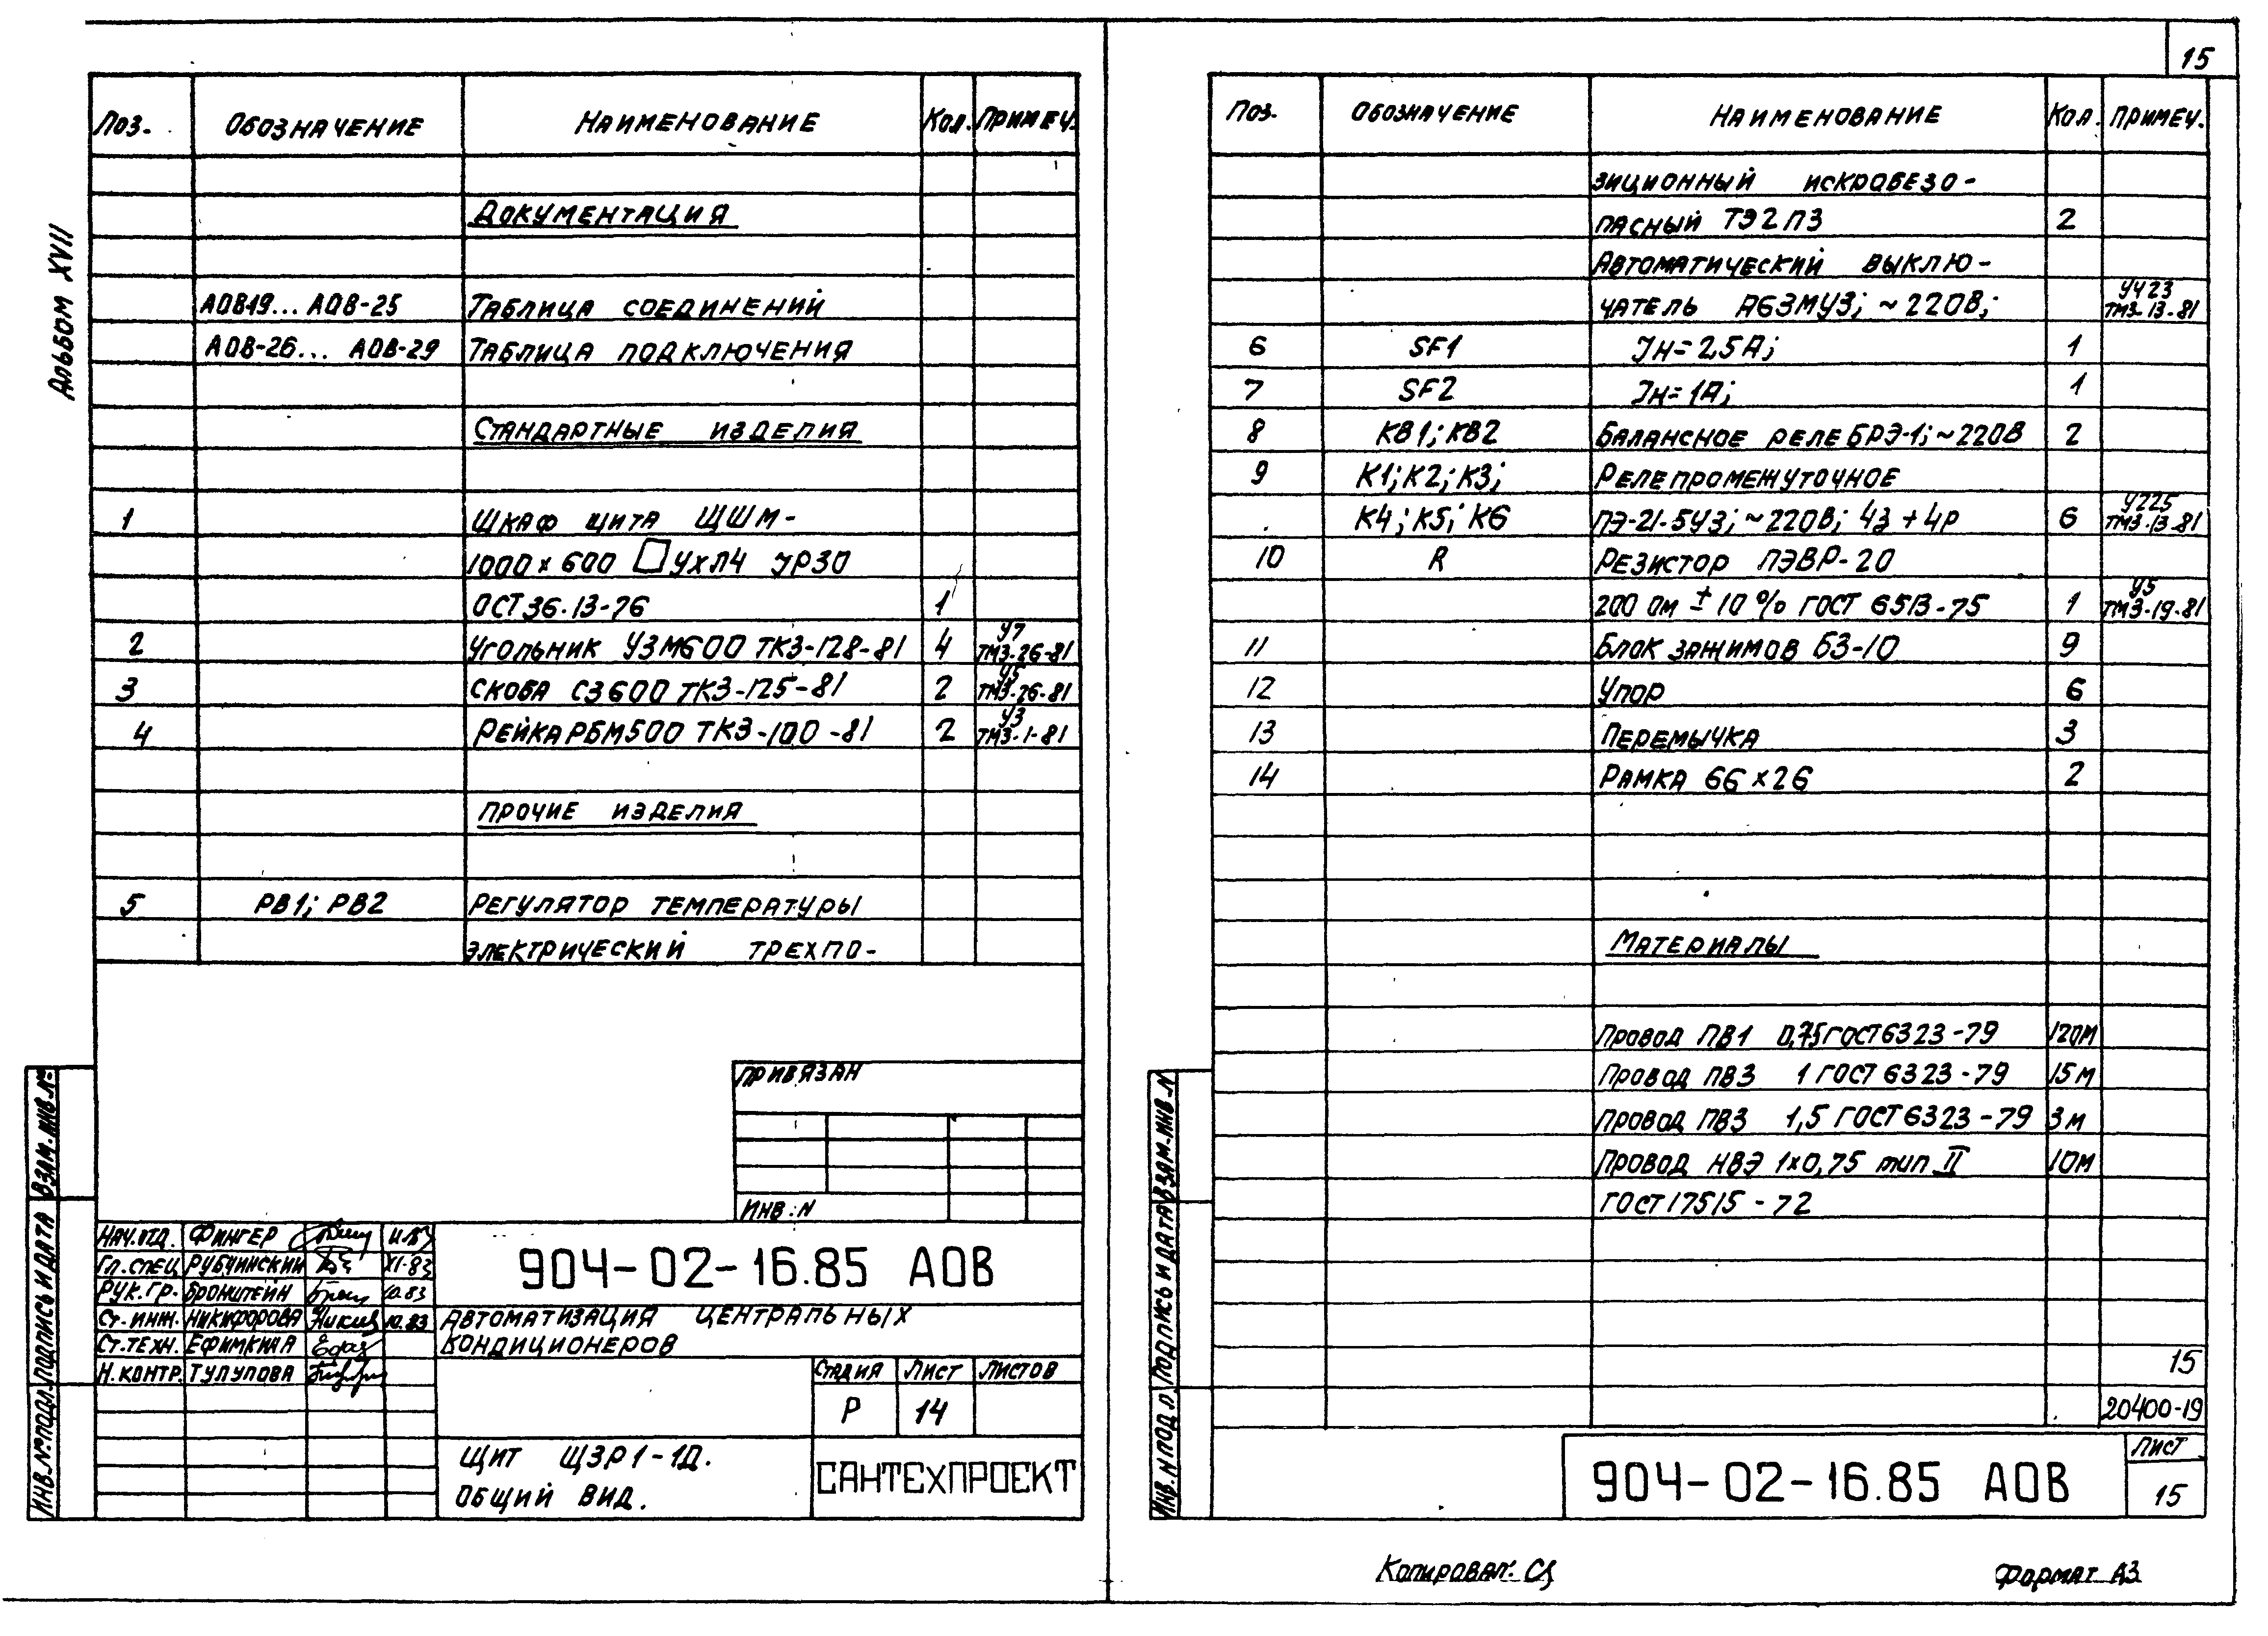 15
Альбом XVII
Поз. Обозначение Наименование Кол. Примеч.
Документация
АОВ19... АОВ-25 Таблица соединений
АОВ-26... АОВ-29 Таблица подключения
Стандартные изделия
1 Шкаф щита ЩШМ-
1000 х 600 УХЛ4 IP30
ОСТ 36.13-76 1
2 Угольник УЗМ600 ТК3-128-81 4 У7 ТМ3-26-81
3 Скоба С3600 ТК3-125-81 2 У5 ТМ3-26-81
4 Рейка РБМ500 ТК3-100-81 2 У3 ТМ3-1-81
Прочие изделия
5 РВ1; РВ2 Регулятор температуры
электрический трехпо-
Привязан
Инв. N
Нач.отд. Фингер
Гл.спец Рубчинский XI-83
Рук.гр. Бронштейн 10.83
Ст.инж. Никифорова 10.83
Ст.техн. Ефимкина
Н.контр. Тулупова
904-02-16.85 АОВ
Автоматизация центральных
кондиционеров
Стадия Лист Листов
Р 14
Щит ЩЗР1-1Д.
Общий вид.
САНТЕХПРОЕКТ
Инв.№подл. Подпись и дата Взам.инв.№
Поз. Обозначение Наименование Кол. Примеч.
зиционный искробезо-
пасный ТЭ2П3 2
Автоматический выклю-
чатель А63МУ3; ~220В; У423 ТМ3-13-81
6 SF1 Iн=2,5А; 1
7 SF2 Iн=1А; 1
8 КВ1; КВ2 Балансное реле БРЭ-1; ~220В 2
9 К1; К2; К3; Реле промежуточное
К4; К5; К6 ПЭ-21-5У3; ~220В; 4з + 4р 6 У225 ТМ3-13-81
10 R Резистор ПЭВР-20
200 Ом ± 10 % ГОСТ 6513-75 1 У5 ТМ3-19-81
11 Блок зажимов БЗ-10 9
12 Упор 6
13 Перемычка 3
14 Рамка 66 х 26 2
Материалы
Провод ПВ1 0,75 ГОСТ 6323-79 120м
Провод ПВ3 1 ГОСТ 6323-79 15м
Провод ПВ3 1,5 ГОСТ 6323-79 3м
Провод НВЭ 1х0,75 тип II 10м
ГОСТ 17515-72
15
20400-19
904-02-16.85 АОВ
Лист
15
Инв.N подл Подпись и дата Взам.инв.N
Копировал: Формат А3